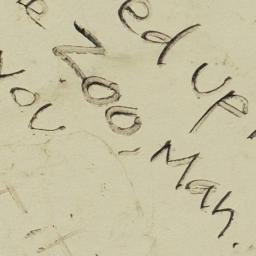 ed up,
Zoo-Man.
you